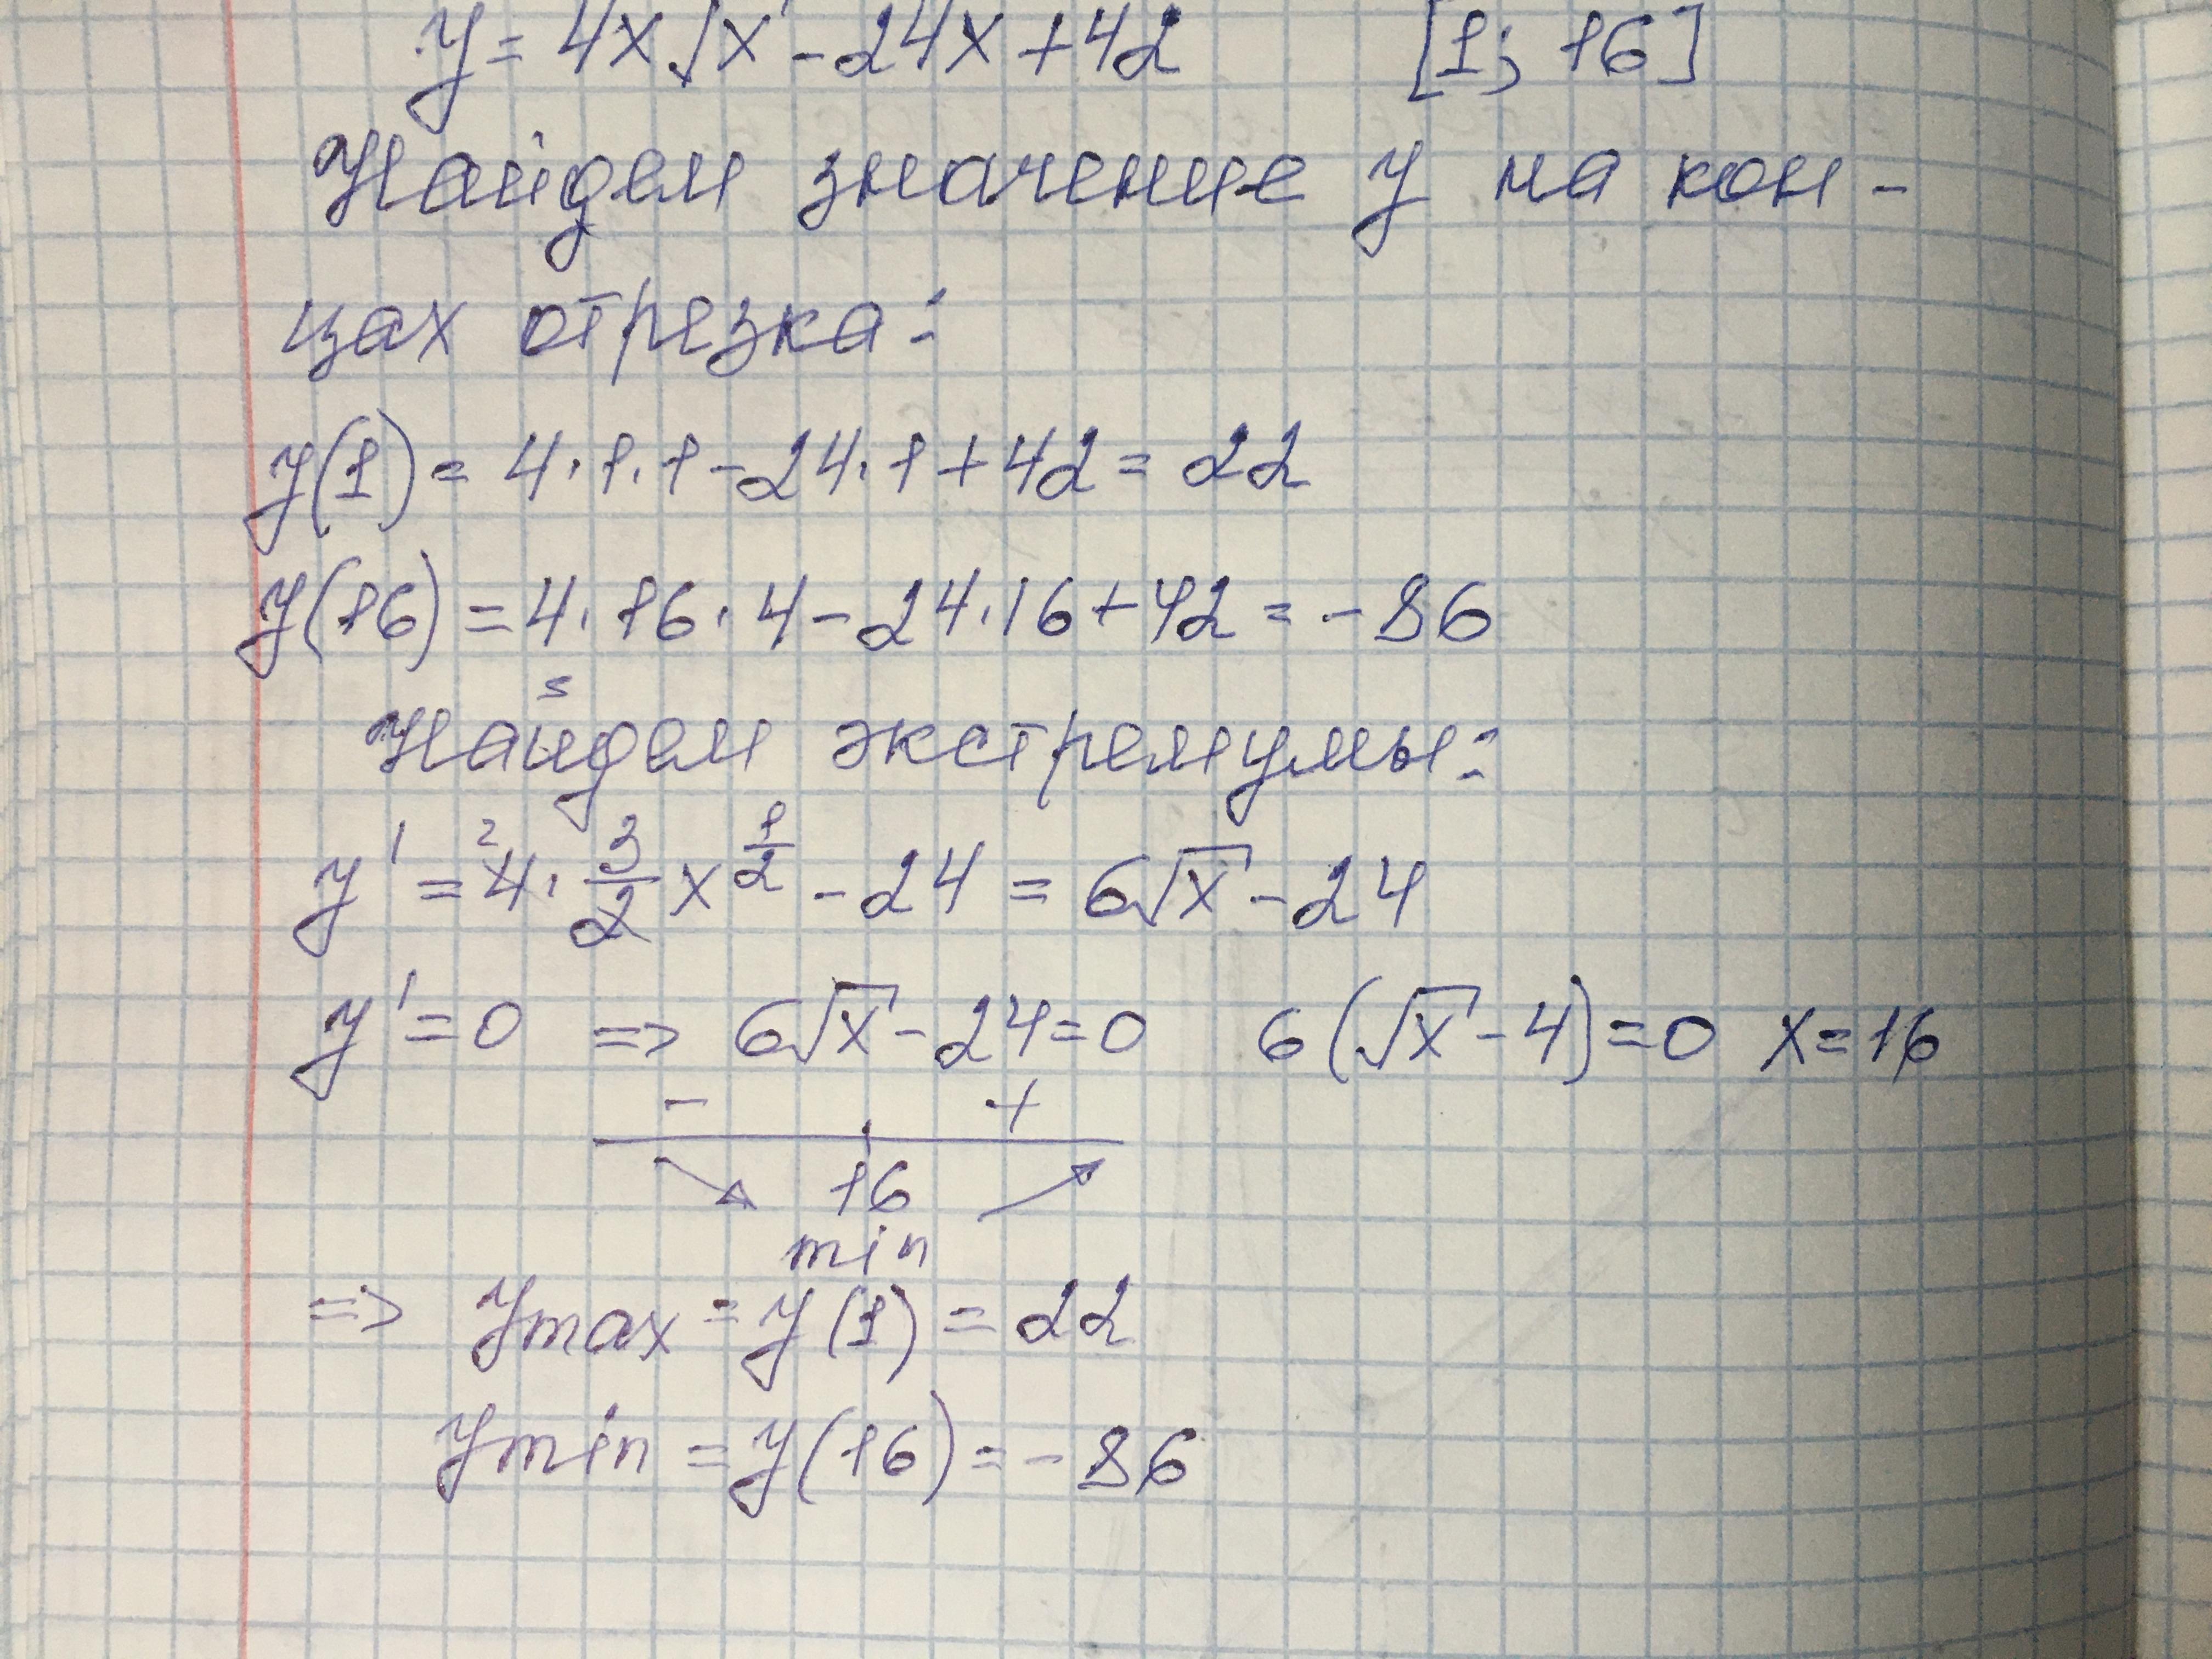 y = 4x√x - 24x + 42 [1; 16]
Найдем значение y на кон-
цах отрезка:
y(1) = 4·1·1 - 24·1 + 42 = 22
y(16) = 4·16·4 - 24·16 + 42 = -86
=
Найдем экстремумы:
y' = ²4· 3/2 x^(1/2) - 24 = 6√x - 24
y' = 0 => 6√x - 24 = 0 6(√x - 4) = 0 x = 16
- +
16
min
=> ymax = y(1) = 22
ymin = y(16) = -86